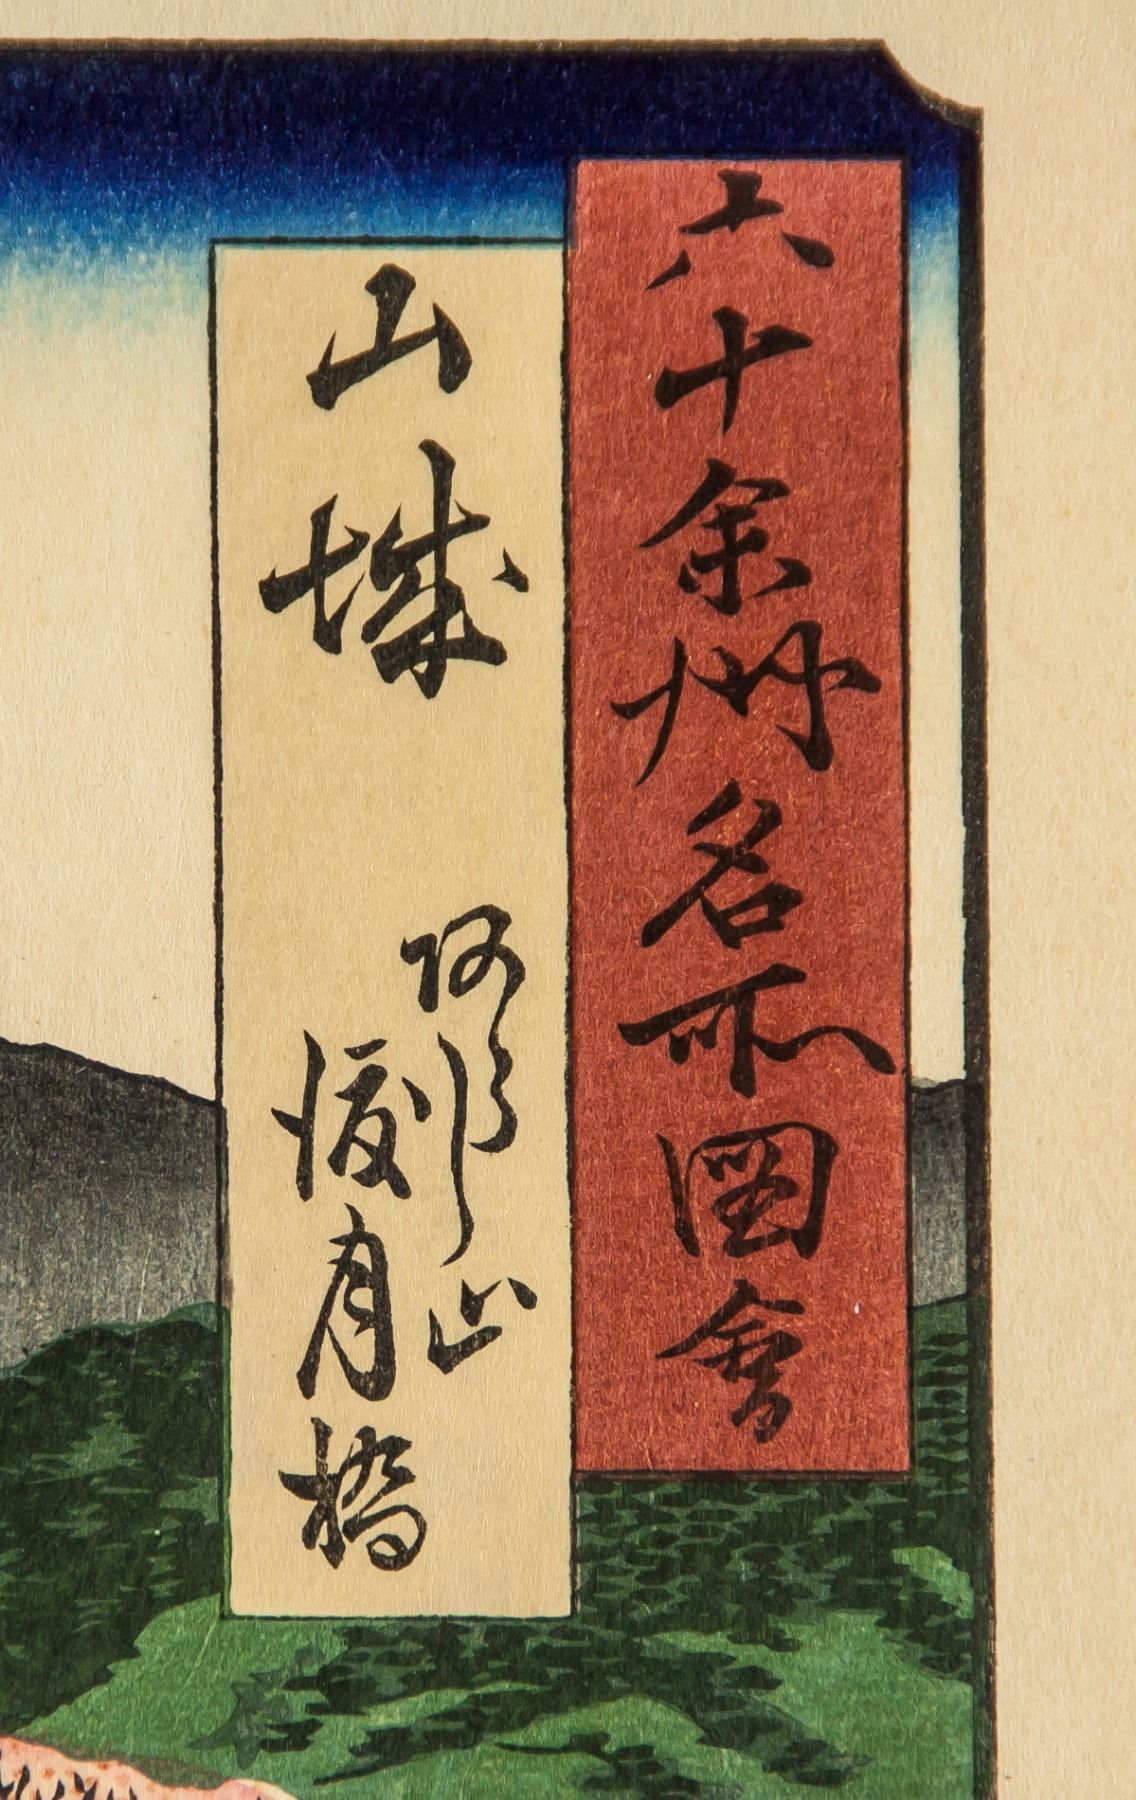 六十余州名所図會
山城
あらし山
渡月橋